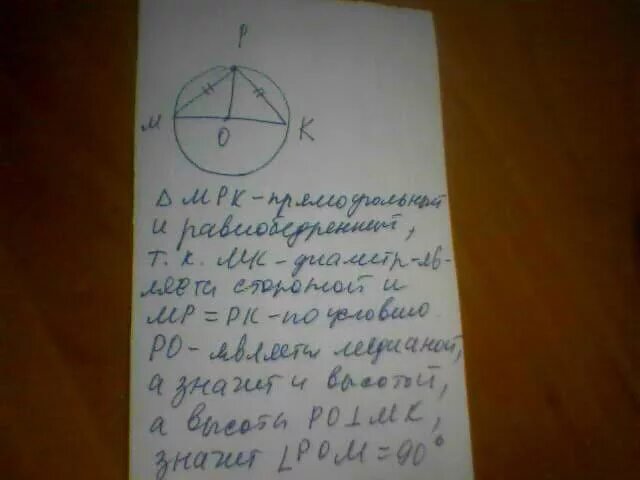 P
M
O
K
Δ МРК - прямоугольный
и равнобедренный,
т. к. МК - диаметр - яв-
ляется стороной и
МР = РК - по условию
РО - является медианой,
а значит и высотой,
а высота РО ⊥ МК,
значит ∠РОМ = 90°